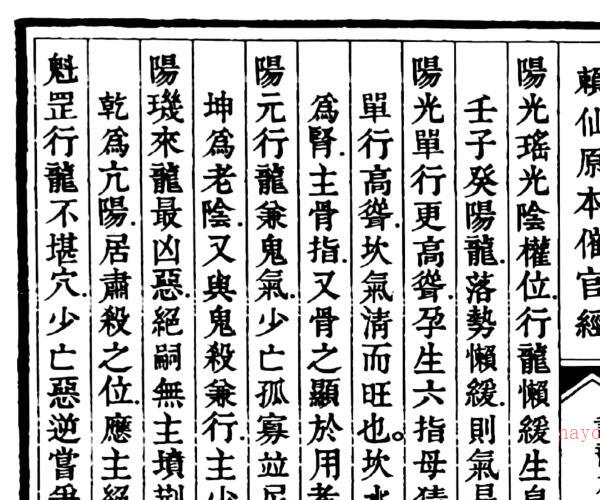 賴仙原本催官經
陽光瑤光陰權位.行龍懶緩生
壬子癸陽龍.落勢懶緩.則氣
陽光單行更高聳.孕生六指母
單行高聳.坎氣清而旺也。坎水
為腎.主骨指.又骨之顯於用者
陽元行龍兼鬼氣.少亡孤寡並
坤為老陰.又與鬼殺兼行.主少
陽璣來龍最凶惡.絕嗣無主墳
乾為亢陽.居肅殺之位.應主絕
魁罡行龍不堪穴.少亡惡逆當
nayo